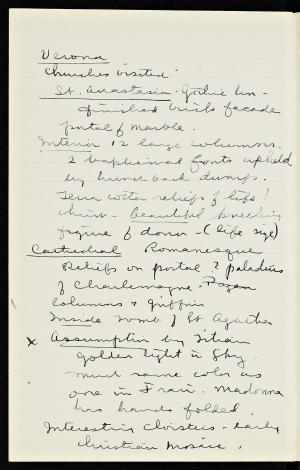 Verona
Churches visited
St. Anastasia. Gothic un-
finished brick facade
portal of marble.
Interior 12 large columns.
2 baptismal fonts upheld
by hunchback dwarfs.
Terra cotta reliefs of life of
Christ - beautiful kneeling
figure of donor - (life size)
Cathedral Romanesque
Reliefs on portal 2 paladins
of Charlemagne.
Columns & griffins
Inside tomb of St Agatha
x Assumption by Titian
golden light in sky.
much same color as
one in Frari. Madonna
has hands folded.
Interesting cloisters - early
Christian mosaic.